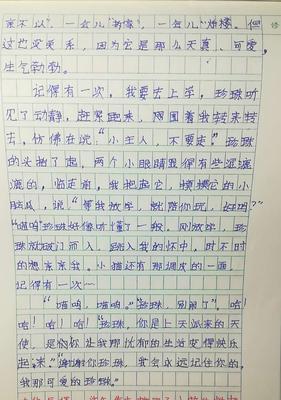 亲不以"，一会儿"抬懒"，一会儿"娇楼。但
这也没关系，因为它是那么天真、可爱，
生气勃勃。
记得有一次，我要去上学，珍珠听
见了动静，赶紧跑来，网围着我转来转
去，仿佛在说："小主人，不要走。"珍珠
的头抬了起，两个小眼睛显得有些泥漉
漉的，临走前，我抱起它，摸摸它的小
脑袋，说"等我放学，就陪你玩，好吗?"
"喵喵"珍珠好像听懂了一般，刚放学，珍
珠就破门而入，跳入我的怀中，时不时
的想亲亲我。小猫还有那调皮的一面，
记得有一次~
"喵喵，喵喵。""珍珠，别闹了"。哈!
哈!哈!哈!"珍珠，你是上天派来的天
使，是你你让我那忧郁的生活变得快乐
起来。""谢谢你珍珠，我会永远记住你的。
我那可爱的珍珠。"